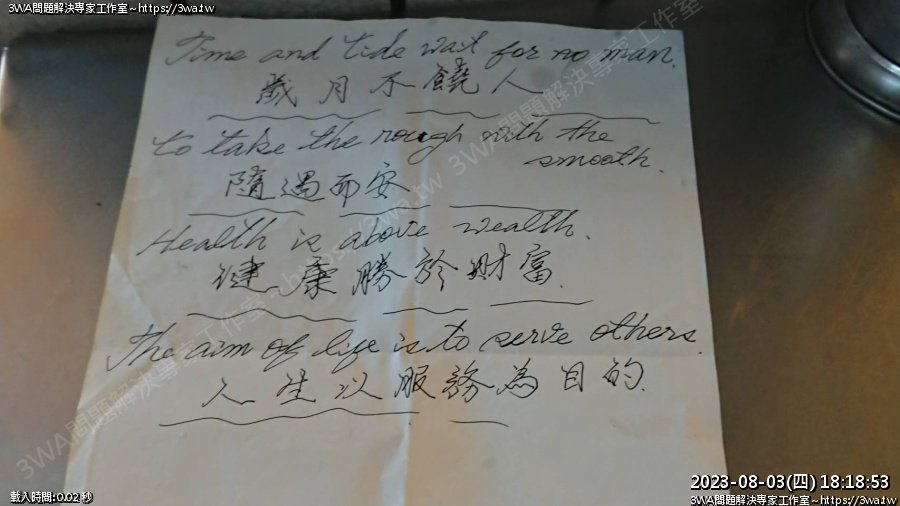 3WA問題解決專家工作室~https://3wa.tw
3WA問題解決專家工作室~https://3wa.tw
Time and tide wait for no man.
歲月不饒人
to take the rough with the
smooth.
隨遇而安
Health is above wealth.
健康勝於財富.
The aim of life is to serve others.
人生以服務為目的.
3WA問題解決專家工作室~https://3wa.tw
2023-08-03(四) 18:18:53
載入時間:0.02 秒
3WA問題解決專家工作室~https://3wa.tw